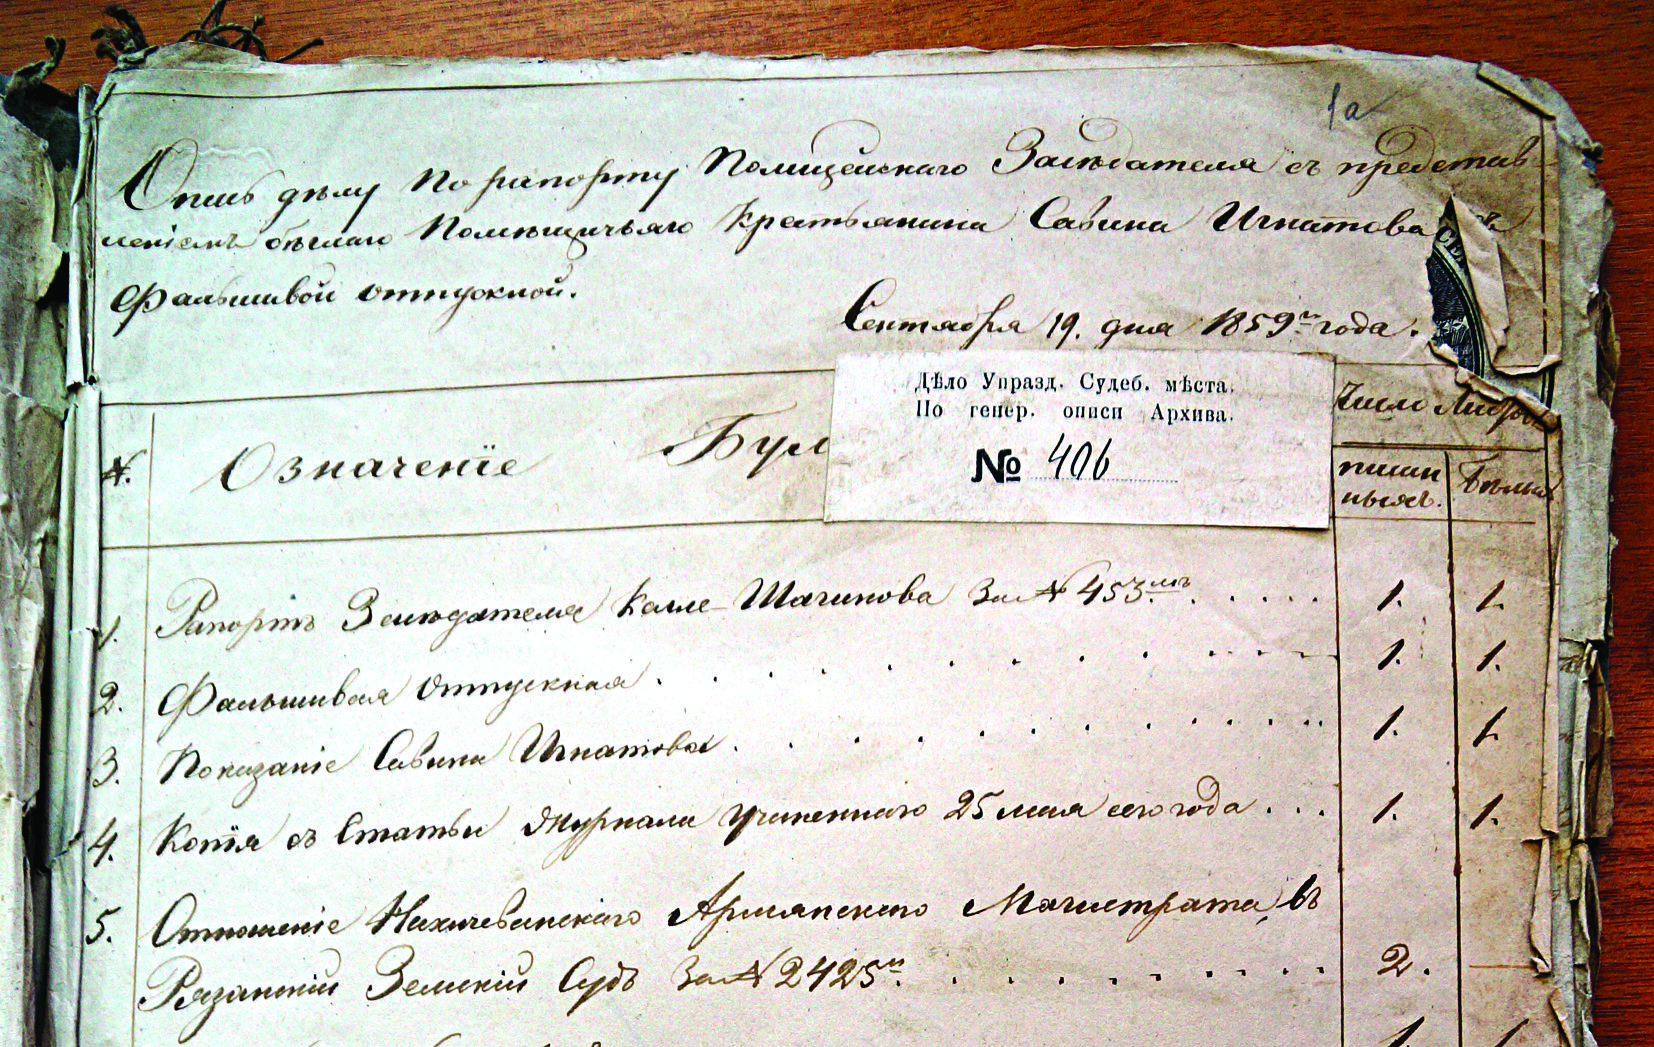 1а
Опись дѣлу По рапорту Полицейскаго Засѣдателя съ представ
леніемъ бѣглаго Помѣщичьяго крестьянина Савина Игнатова съ
Фальшивой отпускной.
Сентября 19. дня 1859го года.
Дѣло Упразд. Судеб. мѣста.
По генер. описи Архива.
№ 406
Число Листовъ
№. Означеніе Бум
писан
ныхъ. Бѣлых
1. Рапортъ Засѣдателя За № 453мъ. 1. 1.
2. Фальшивая отпускная 1. 1.
3. Показаніе Савина Игнатова. 1. 1.
4. Копія съ Статьи Журнала Учиненнаго 25 мая сего года 1. 1.
5. Отношеніе Нахичеванскаго Армянскаго Магистрата, въ
Рязанскій Земскій Судъ За № 2425м. 2. —